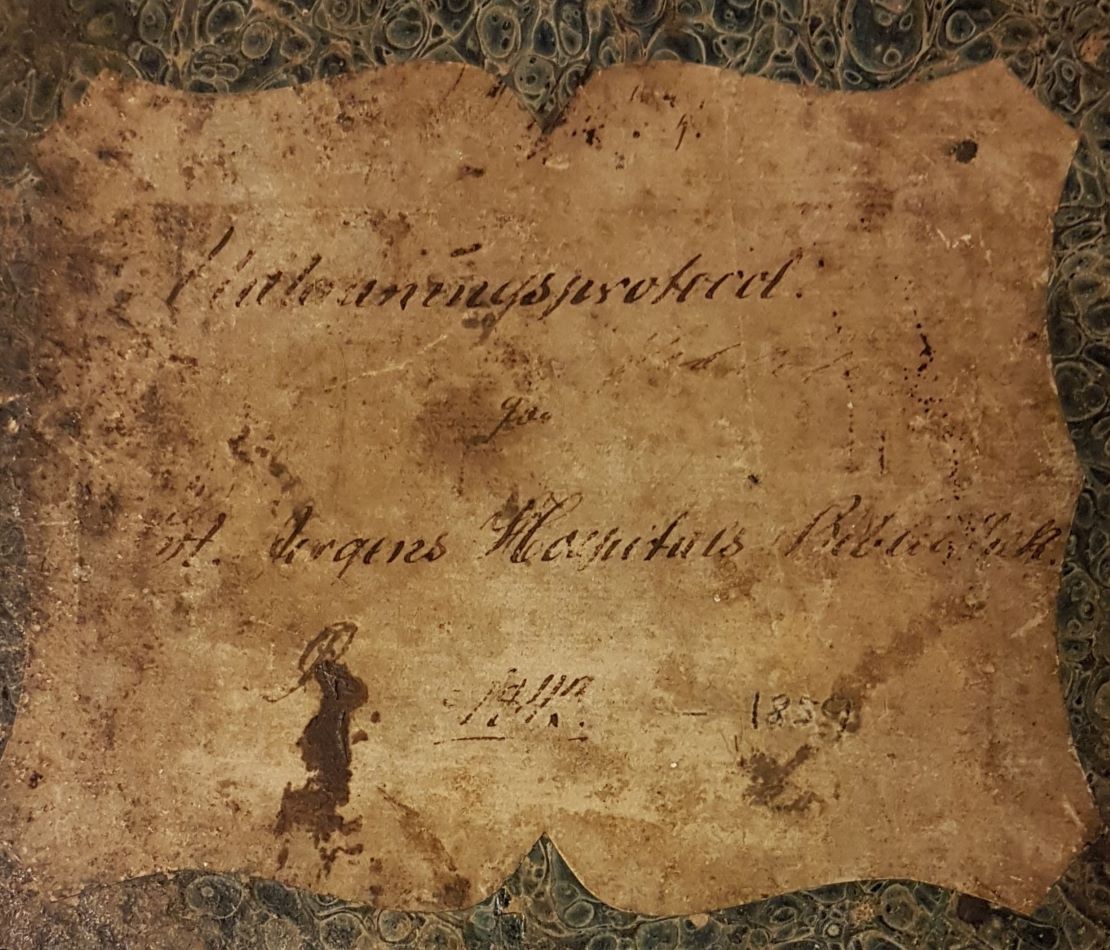 Udlaaningsprotocol.
for
St. Jørgens Hospitals Bibliothek.
— 1859